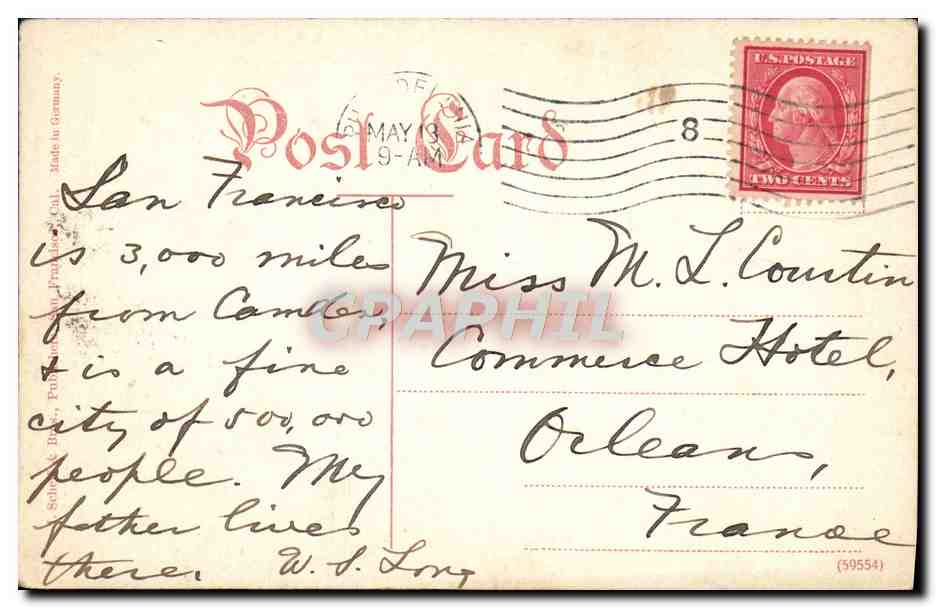 U.S. POSTAGE
TWO CENTS
Post Card
MAY 13
9-AM
8
San Francisco
is 3,000 miles
from Camden,
& is a fine
city of 500,000
people. My
father lives
there. W. S. Long
Miss M. L. Coustin
Commerce Hotel,
Orleans,
France
(59554)
Bros., San Francisco, Cal. Made in Germany.
CPAPHIL